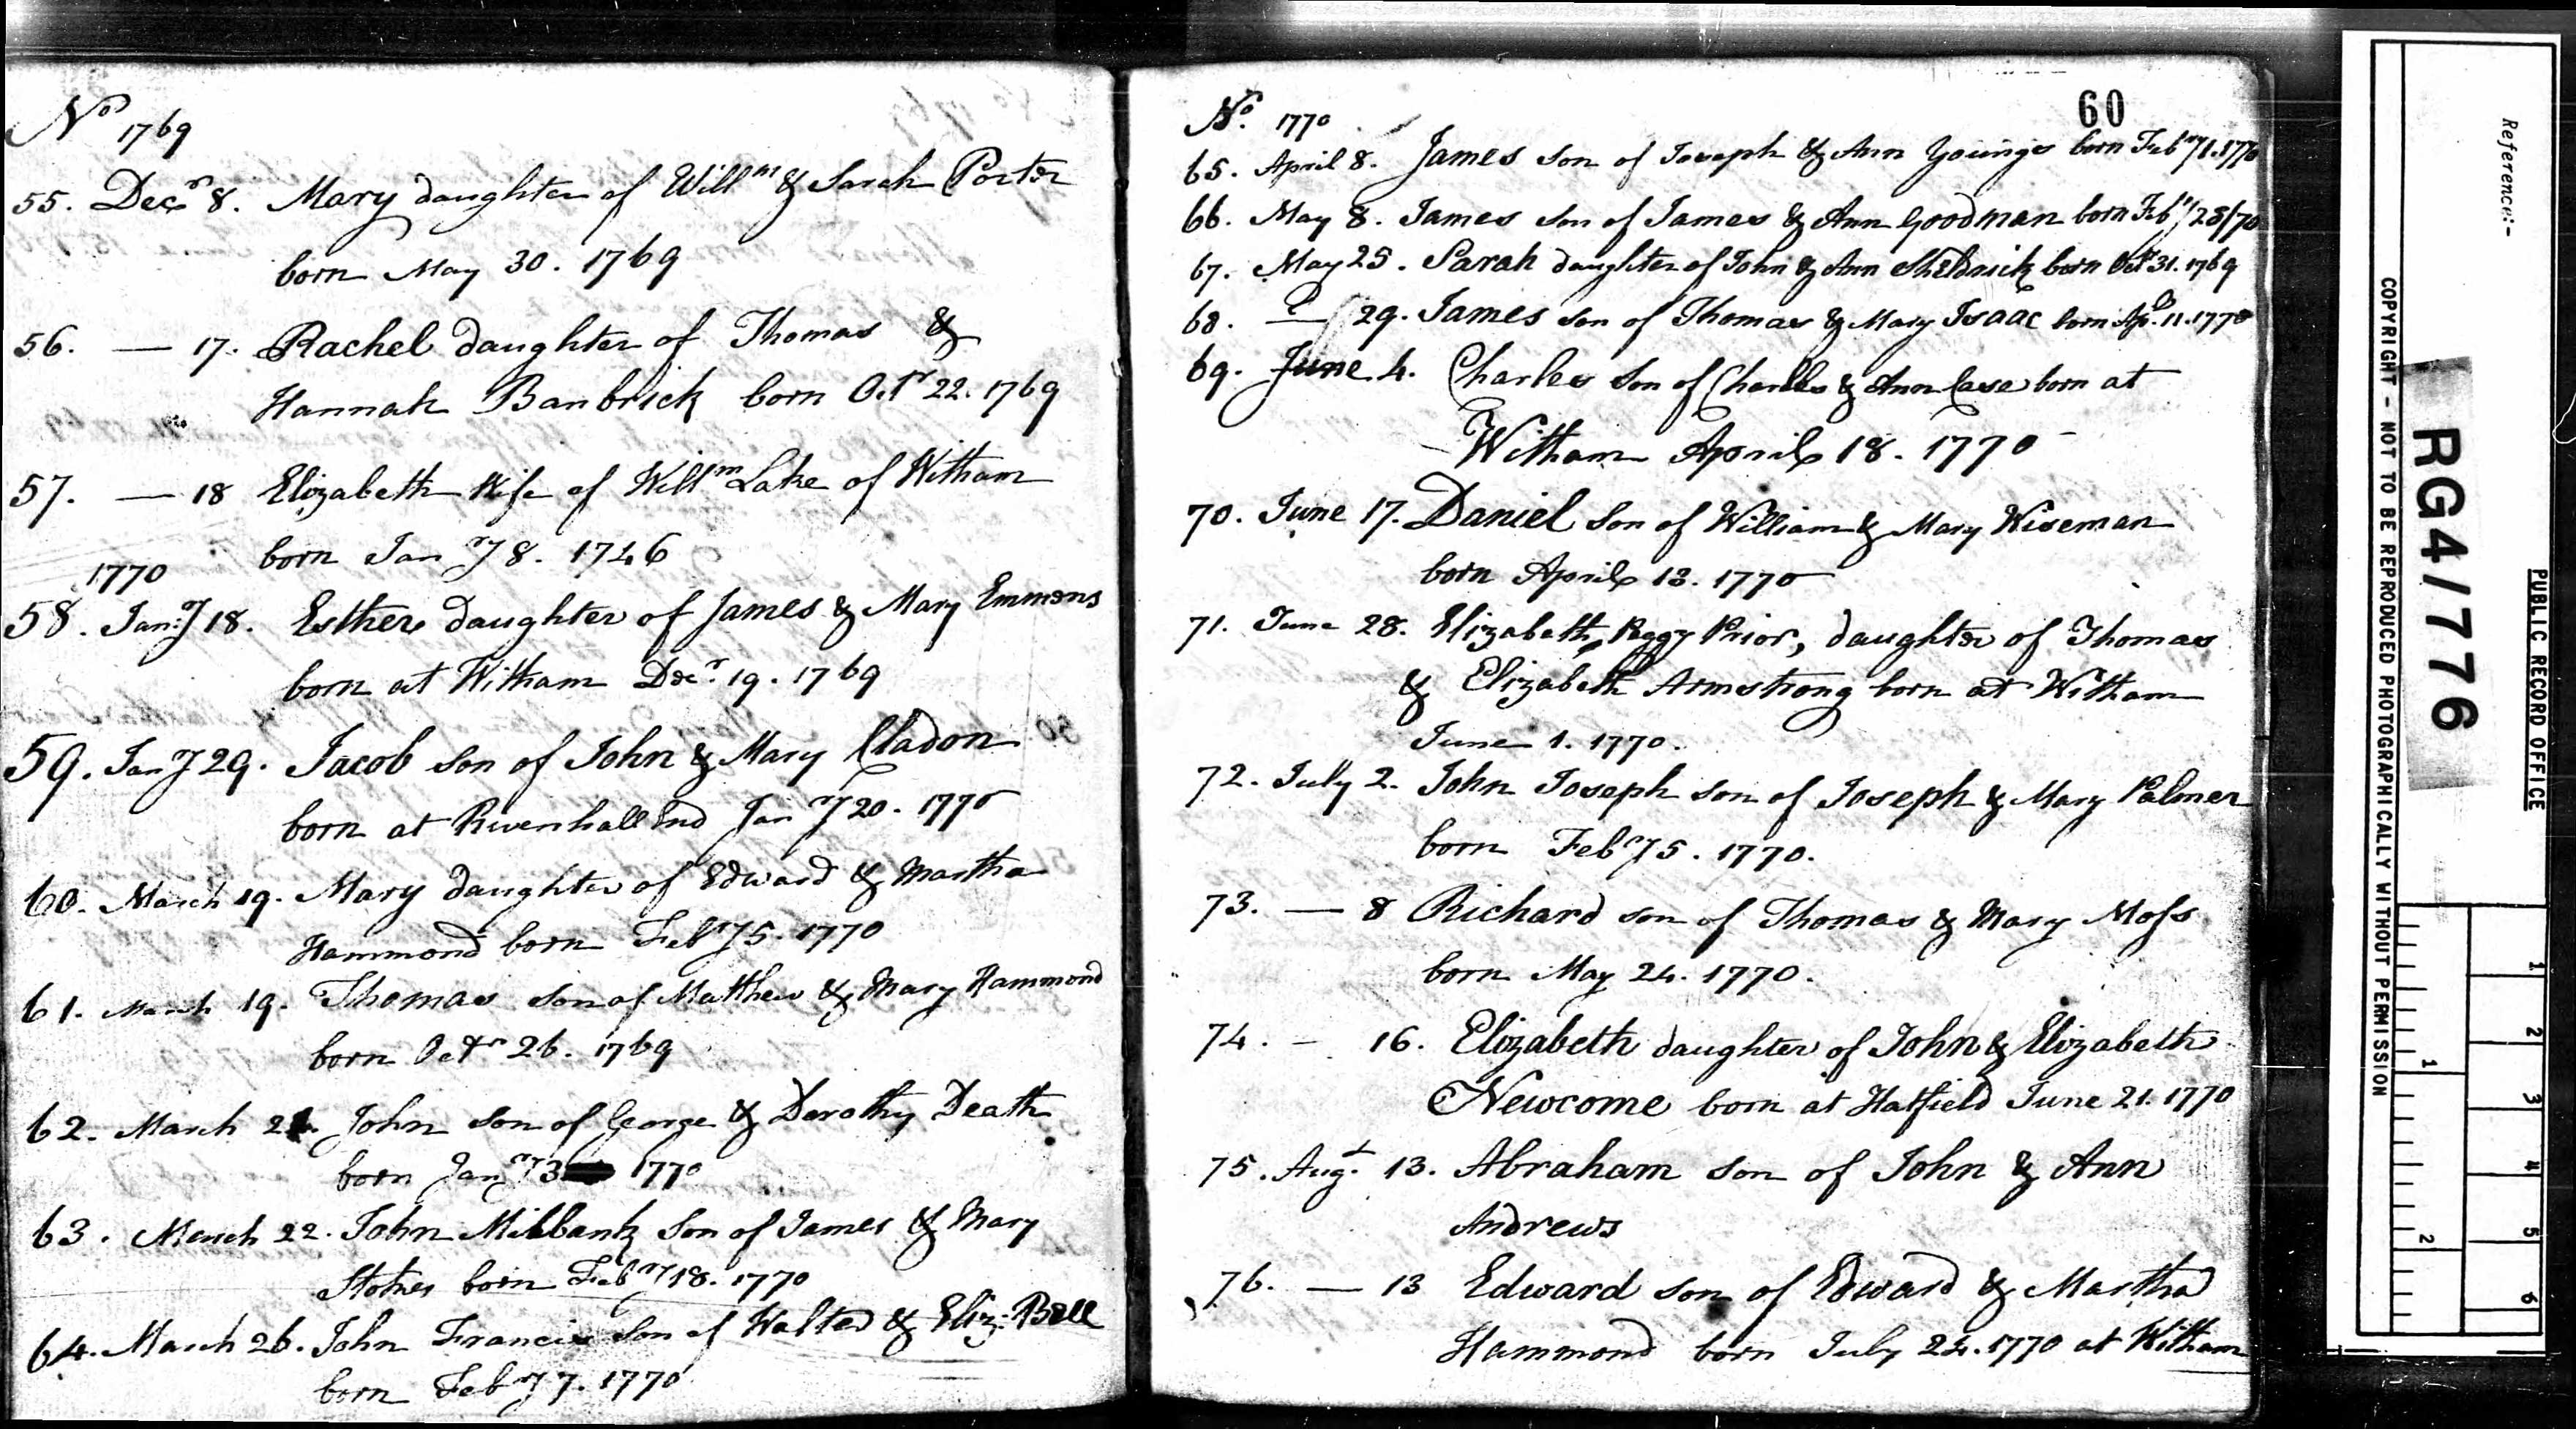 No 1769
55. Decr 8. Mary daughter of Willm & Sarah Porter
born May 30. 1769
56. — 17. Rachel daughter of Thomas &
Hannah Banbrick born Octr 22. 1769
57. — 18 Elizabeth Wife of Willm Lake of Witham
born Janry 8. 1746
1770
58. Janry 18. Esther daughter of James & Mary Emmons
born at Witham Decr 19. 1769
59. Janry 29. Jacob son of John & Mary Cladon
born at Rivenhall End Janry 20. 1770
60. March 19. Mary daughter of Edward & Martha
Hammond born Febry 5. 1770
61. March 19. Thomas son of Matthew & Mary Hammond
born Octr 26. 1769
62. March 21. John son of George & Dorothy Death
born Janry 3 1770
63. March 22. John Milbank Son of James & Mary
Stokes born Febry 18. 1770
64. March 26. John Francis Son of Walter & Eliz: Bell
born Febry 7. 1770
60
No. 1770
65. April 8. James Son of Joseph & Ann Youngs born Febry 1. 1770
66. May 8. James Son of James & Ann Goodman born Feby/28/70
67. May 25. Sarah daughter of John & Ann Sheldrick born Octr 31. 1769
68. — 29. James Son of Thomas & Mary Isaac born Apl. 11. 1770
69. June 4. Charles Son of Charles & Ann born at
Witham April 18. 1770
70. June 17. Daniel Son of William & Mary Wiseman
born April 13. 1770
71. June 28. Elizabeth, Peggy Prior, daughter of Thomas
& Elizabeth Armstrong born at Witham
June 1. 1770.
72. July 2. John Joseph son of Joseph & Mary Palmer
born Febry 5. 1770.
73. — 8 Richard son of Thomas & Mary Moss
born May 24. 1770.
74. – 16. Elizabeth daughter of John & Elizabeth
Newcome born at Hatfield June 21. 1770
75. Augt. 13. Abraham son of John & Ann
Andrews
76. — 13 Edward son of Edward & Martha
Hammond born July 24. 1770 at Witham
Reference:-
PUBLIC RECORD OFFICE
RG4/776
COPYRIGHT - NOT TO BE REPRODUCED PHOTOGRAPHICALLY WITHOUT PERMISSION
1 2 3 4 5 6
1 2